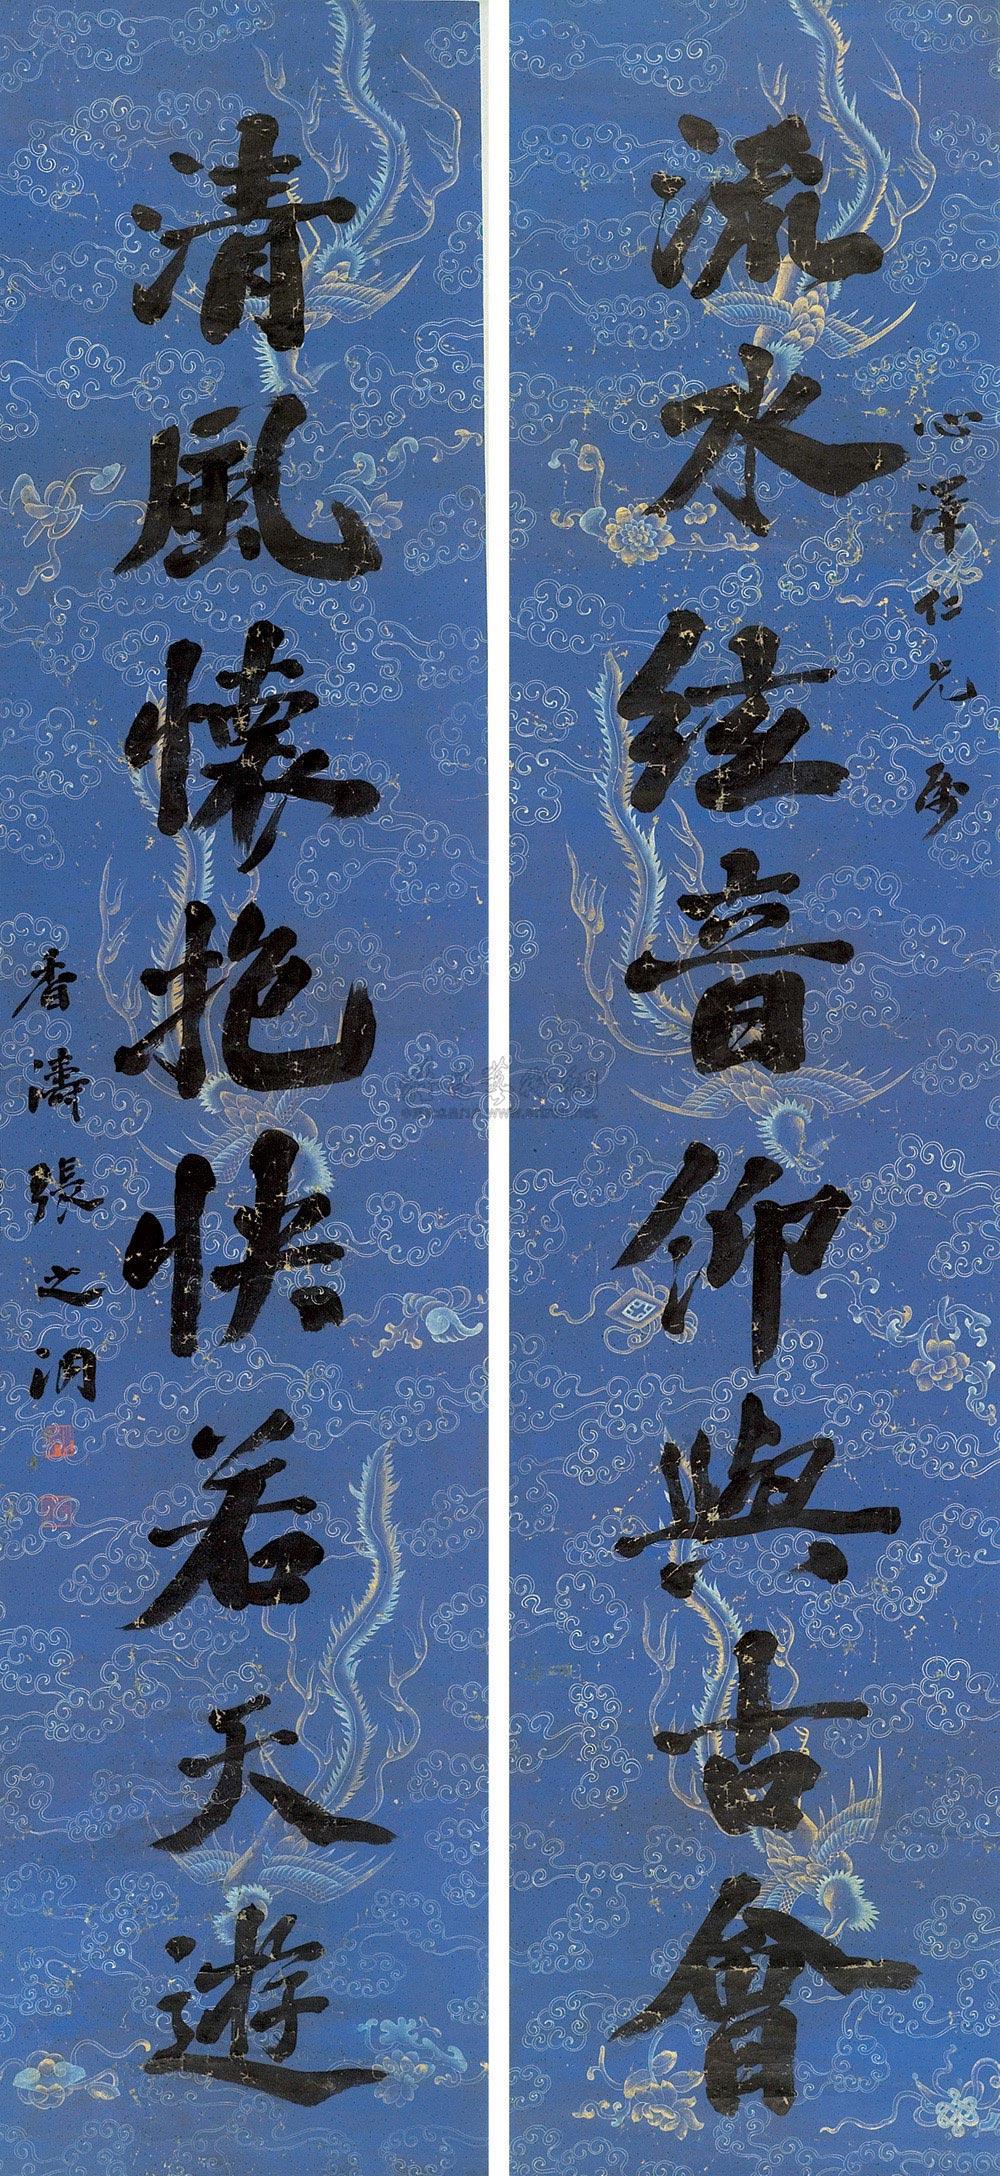 心澤仁兄屬
流水絃音仰與古會
清風懷抱快若天遊
香濤張之洞